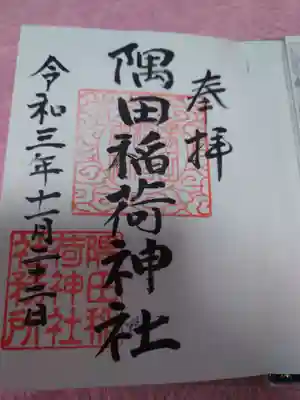 奉拝
隅田稲荷神社
令和三年十一月二十二日
隅田稲
荷神社
社務所